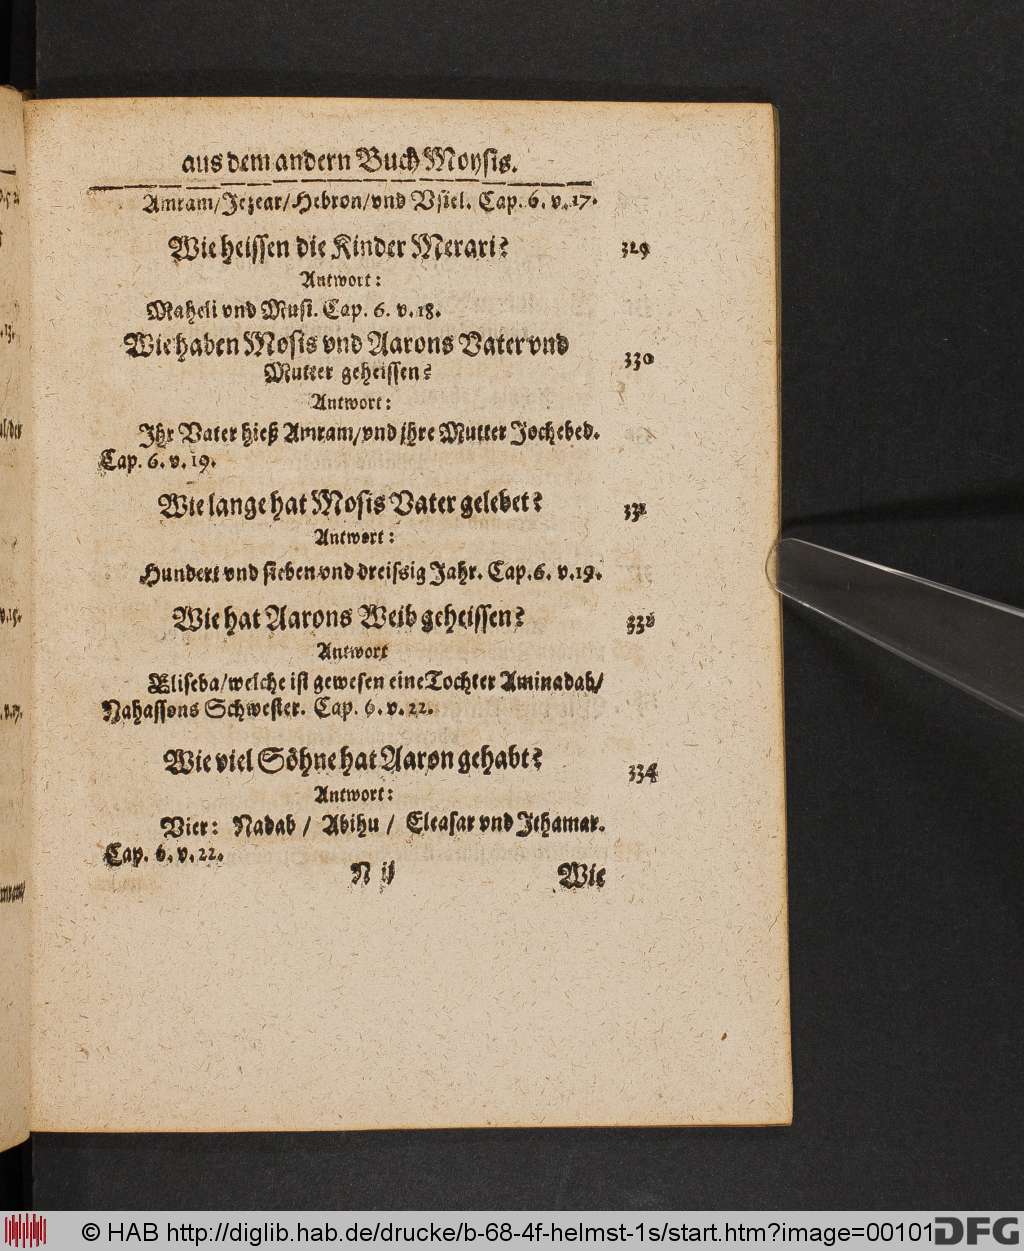 aus dem andern Buch Moysis.
Amram/Jezear/Hebron/vnd Vsiel. Cap. 6. v. 17.
Wie heissen die Kinder Merari? 329
Antwort:
Maheli vnd Musi. Cap. 6. v. 18.
Wie haben Mosis vnd Aarons Vater vnd 330
Mutter geheissen?
Antwort:
Jhr Vater hieß Amram/vnd jhre Mutter Jochebed.
Cap. 6. v. 19.
Wie lange hat Mosis Vater gelebet? 331
Antwort:
Hundert vnd sieben vnd dreissig Jahr. Cap. 6. v. 19.
Wie hat Aarons Weib geheissen?
Antwort
Eliseba/welche ist gewesen eine Tochter Aminadab/
Nahassons Schwester. Cap. 6. v. 22.
Wie viel Söhne hat Aaron gehabt? 334
Antwort:
Vier: Nadab / Abihu / Eleasar vnd Jthamar.
Cap. 6. v. 22.
N ij Wie
© HAB http://diglib.hab.de/drucke/b-68-4f-helmst-1s/start.htm?image=00101
DFG